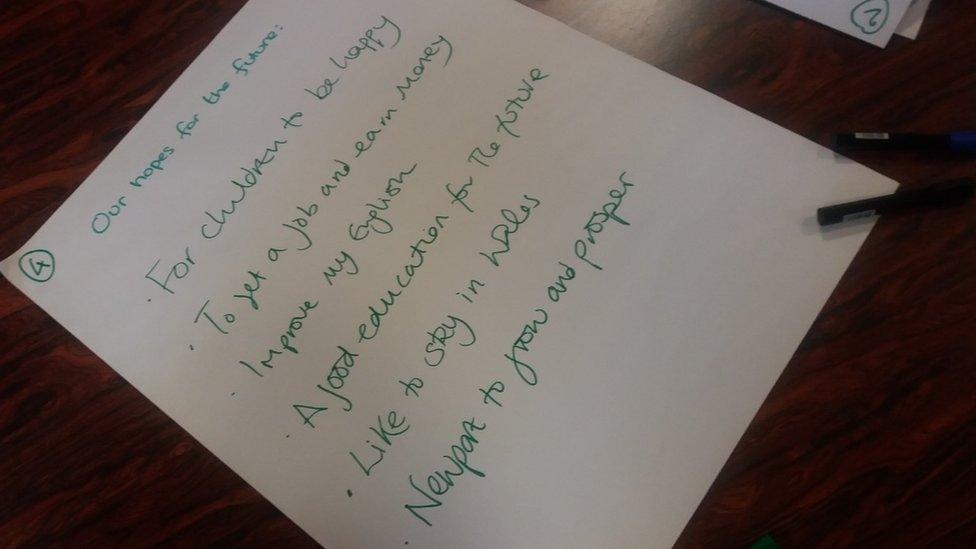 4
Our hopes for the future:
. For children to be happy
. To get a job and earn money
. Improve my English
. A good education for the future
. Like to stay in Wales
. Newport to grow and prosper
2